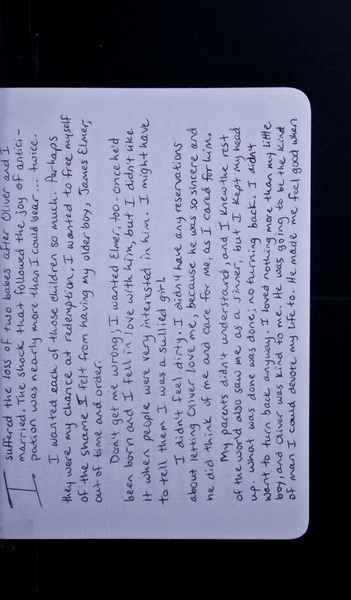 I suffered the loss of two babes after Oliver and I
married. The shock that followed the joy of antici-
pation was nearly more than I could bear... twice.
I wanted each of those children so much. Perhaps
they were my chance at redemption. I wanted to free myself
of the shame I felt from having my older boy, James Elmer,
out of time and order.
Don't get me wrong; I wanted Elmer, too - once he'd
been born and I fell in love with him, but I didn't like
it when people were very interested in him. I might have
to tell them I was a sullied girl.
I didn't feel dirty. I didn't have any reservations
about letting Oliver love me, because he was so sincere and
he did think of me and care for me, as I cared for him.
My parents didn't understand, and I knew the rest
of the world also saw me as a sinner, but I kept my head
up. What was done was done; no turning back. I didn't
want to turn back anyway. I loved nothing more than my little
boy, and Oliver was kind to me. He was going to be the kind
of man I could devote my life to. He made me feel good when